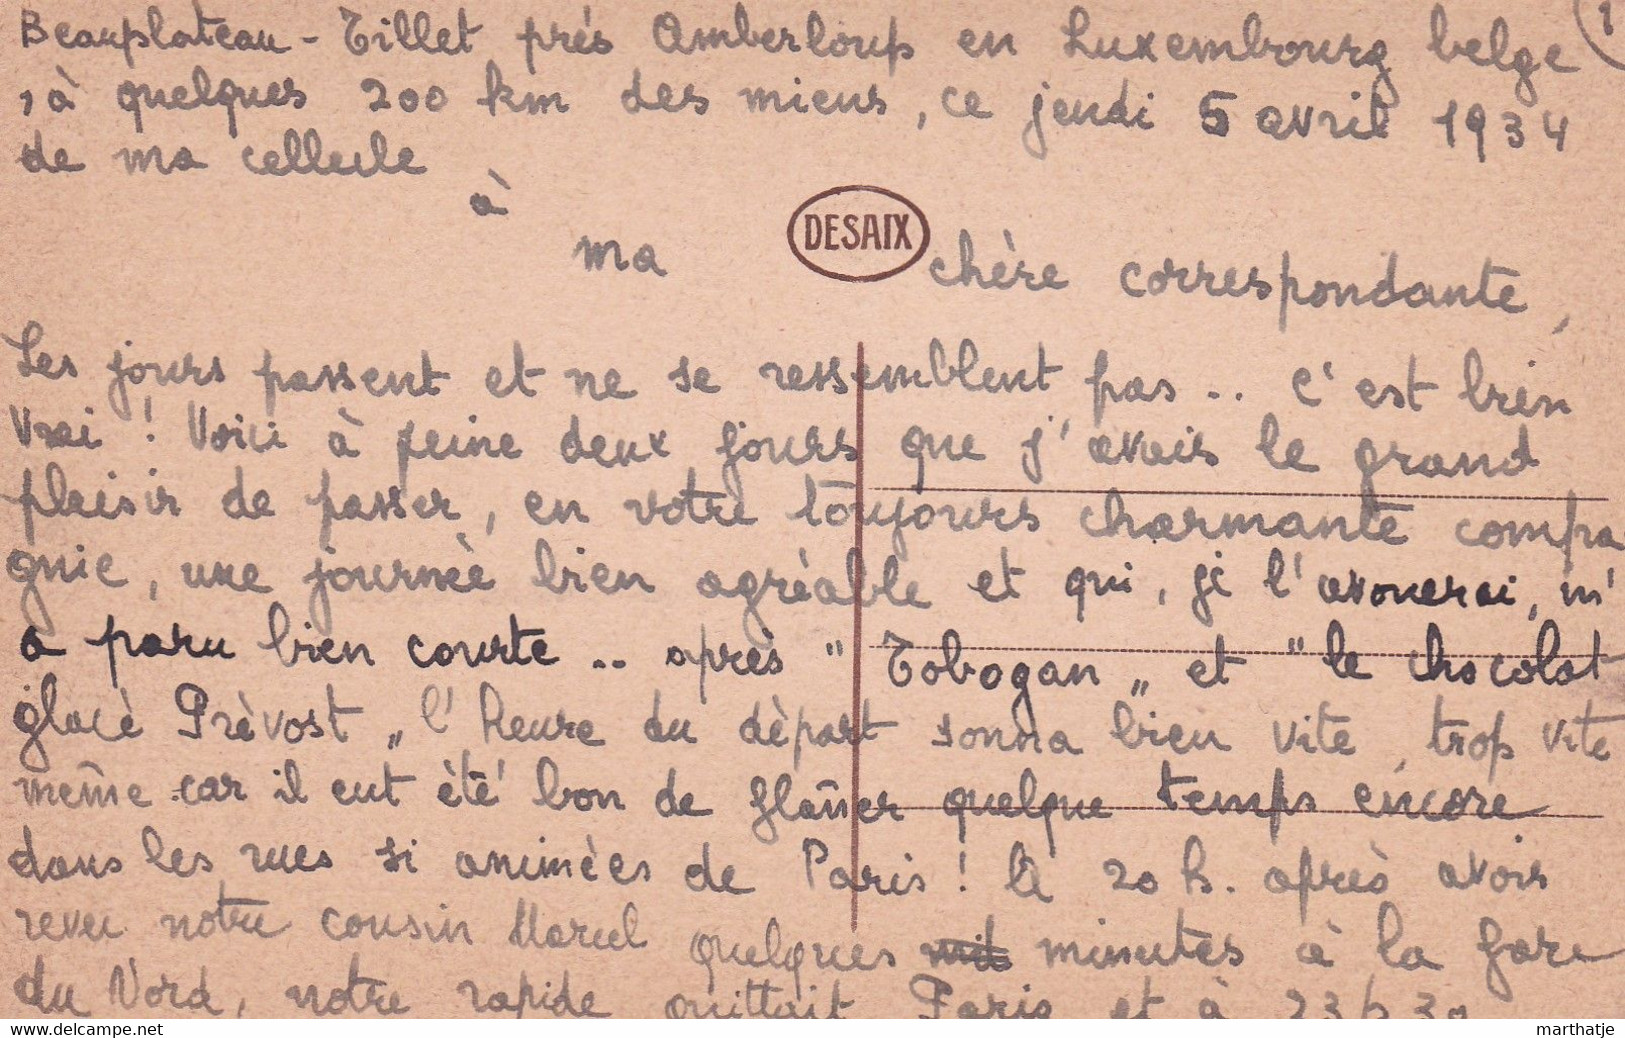 1
Beauplateau - Tillet près Amberloup en Luxembourg belge
, à quelques 200 km des miens, ce jeudi 5 avril 1934
de ma cellule
à
ma chère correspondante,
DESAIX
Les jours passent et ne se ressemblent pas .. C'est bien
vrai ! Voici à peine deux jours que j'avais le grand
plaisir de passer, en votre toujours charmante compa
gnie, une journée bien agréable et qui, je l'avouerai, m'
a paru bien courte .. après " Tobogan „ et " le chocolat
glacé Prévost „ l'heure du départ sonna bien vite, trop vite
même car il eut été bon de flâner quelque temps encore
dans les rues si animées de Paris ! A 20 h. après avoir
revu notre cousin Marcel quelques minutes à la Gare
du Nord, notre rapide quittait Paris et à 23 h 30
delcampe.net
marthatje